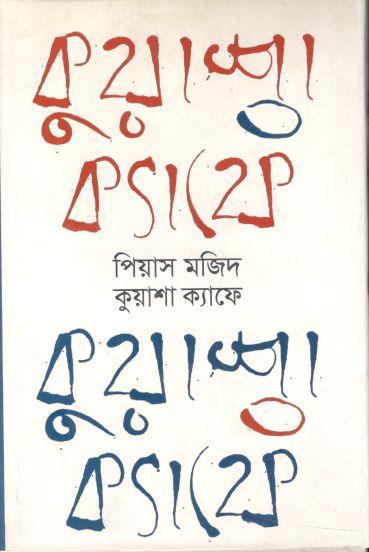 কুয়াশা
ক্যাফে
পিয়াস মজিদ
কুয়াশা ক্যাফে
কুয়াশা
ক্যাফে